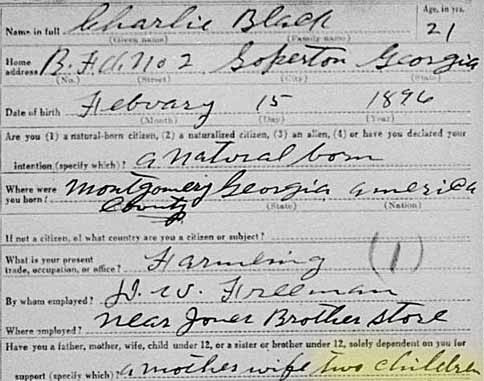 Name in full Charlie Black Age, in yrs.
(Given name) (Family name) 21
Home address B. F. d. No 2 Soperton Georgia
(No.) (Street) (City) (State)
Date of birth Febvary 15 1896
(Month) (Day) (Year)
Are you (1) a natural-born citizen, (2) a naturalized citizen, (3) an alien, (4) or have you declared your
intention (specify which)? a natural born
Where were you born? Montgomery Georgia america
County (State) (Nation)
If not a citizen, of what country are you a citizen or subject?
What is your present trade, occupation, or office? Farmling (1)
By whom employed? H. W. Freeman
Where employed? near Jones Brother store
Have you a father, mother, wife, child under 12, or a sister or brother under 12, solely dependent on you for
support (specify which)? a mother wife two children